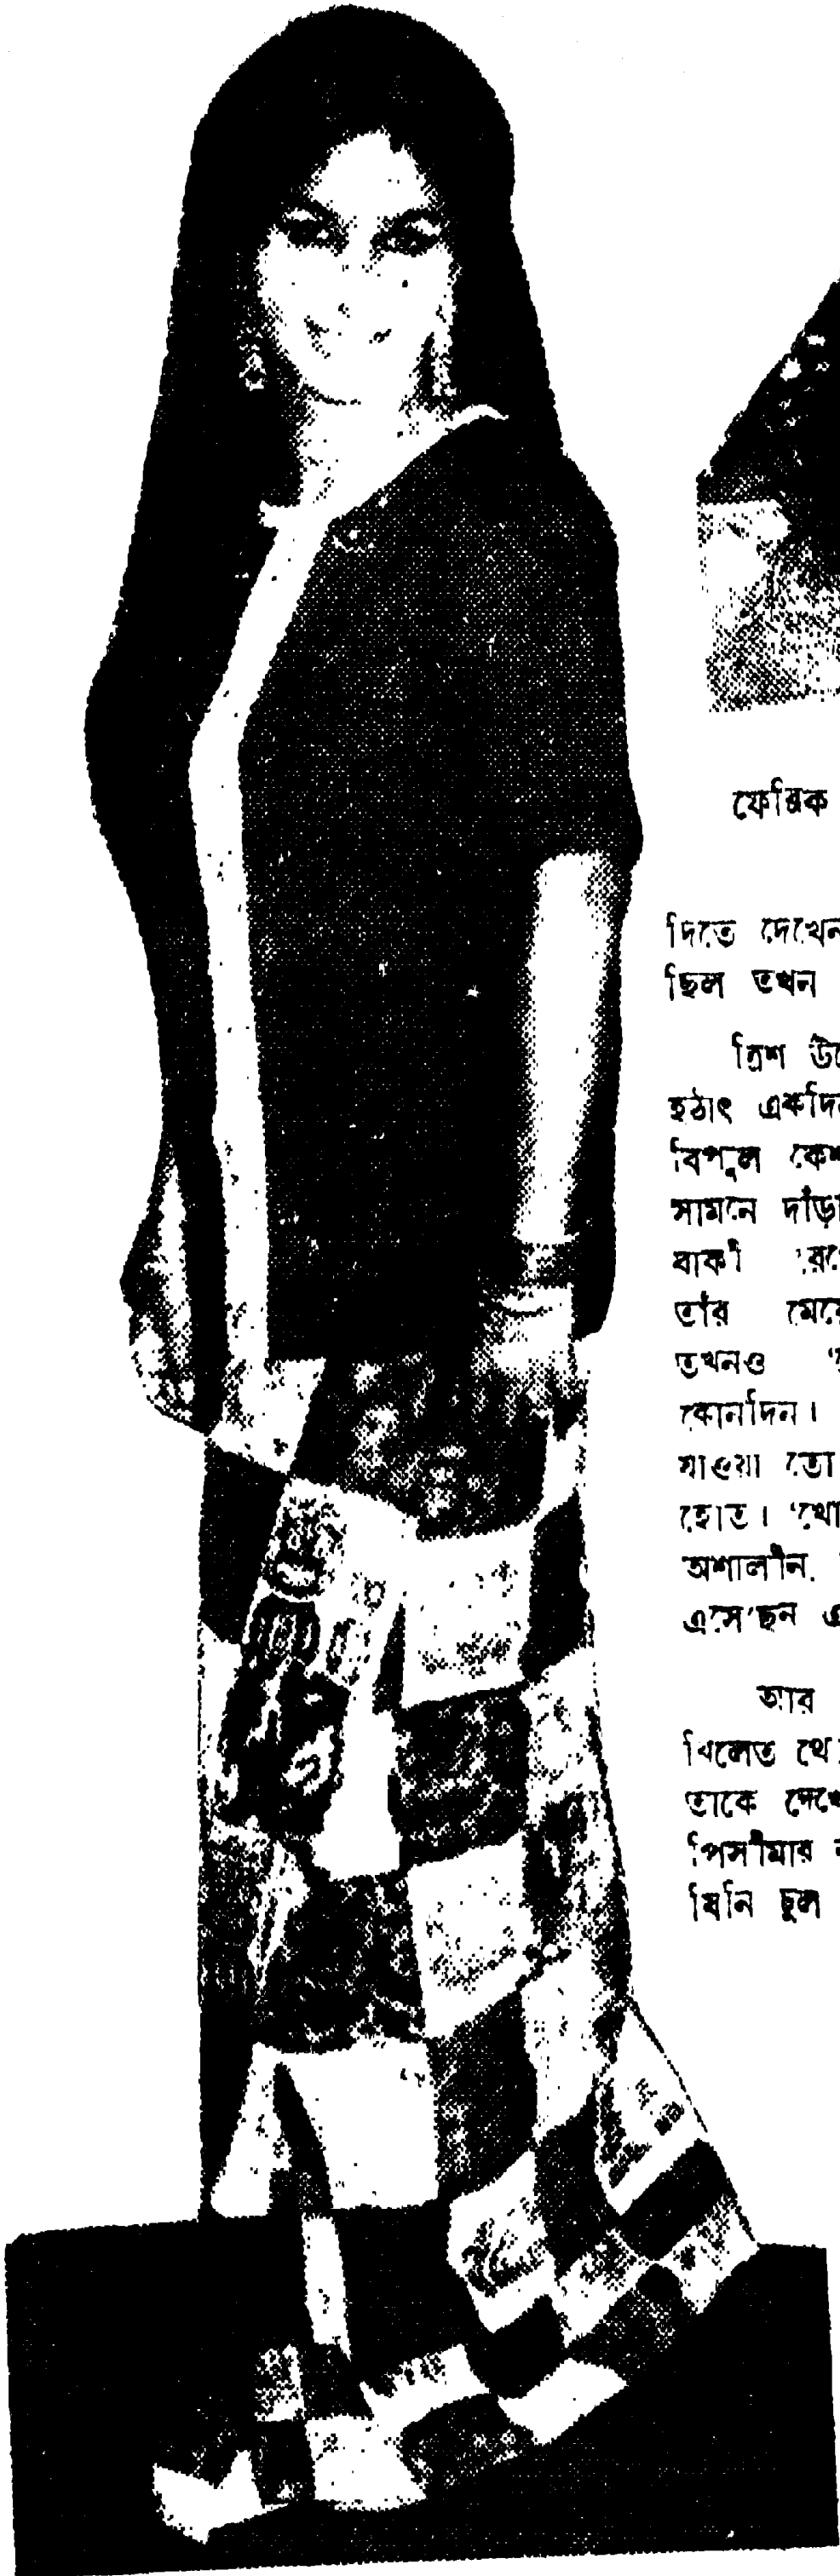 ফেব্রিক
দিতে দেখেন
ছিল তখন
ত্রিশ
হঠাৎ একদি
বিপুল কেশ
সামনে দাঁড়
বাকী
তাঁর মেয়ে
তখনও
কোনদিন।
যাওয়া তো
হোত। 'খো
অশালীন.
এসেছেন এ
আর
বিলেত থে
তাকে দেখে
পিসীমার
যিনি চুল